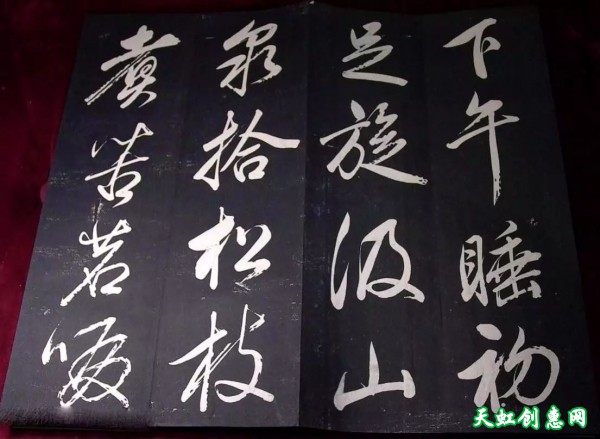 下午睡初
足旋汲山
泉拾松枝
煑苦茗啜
天虹创惠网